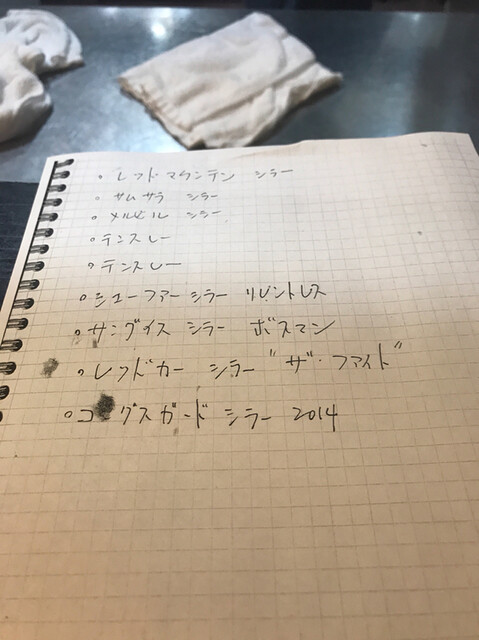 ・レッドマウンテン シラー
・サムサラ シラー
・メルビル シラー
・テンスレー
・テンスレー
・シューファー シラー リレントレス
・サングイス シラー ボスマン
・レッドカー シラー "ザ・ファイト"
・コングスガード シラー 2014